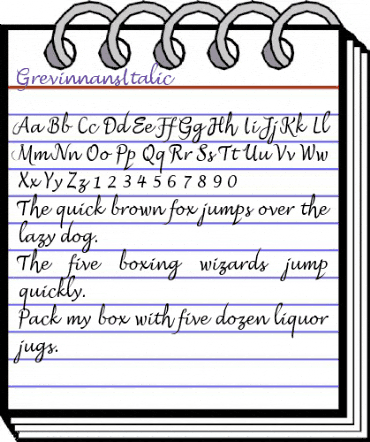 GrevinnansItalic
Aa Bb Cc Dd Ee Ff Gg Hh Ii Jj Kk Ll
Mm Nn Oo Pp Qq Rr Ss Tt Uu Vv Ww
Xx Yy Zz 1 2 3 4 5 6 7 8 9 0
The quick brown fox jumps over the
lazy dog.
The five boxing wizards jump
quickly.
Pack my box with five dozen liquor
jugs.